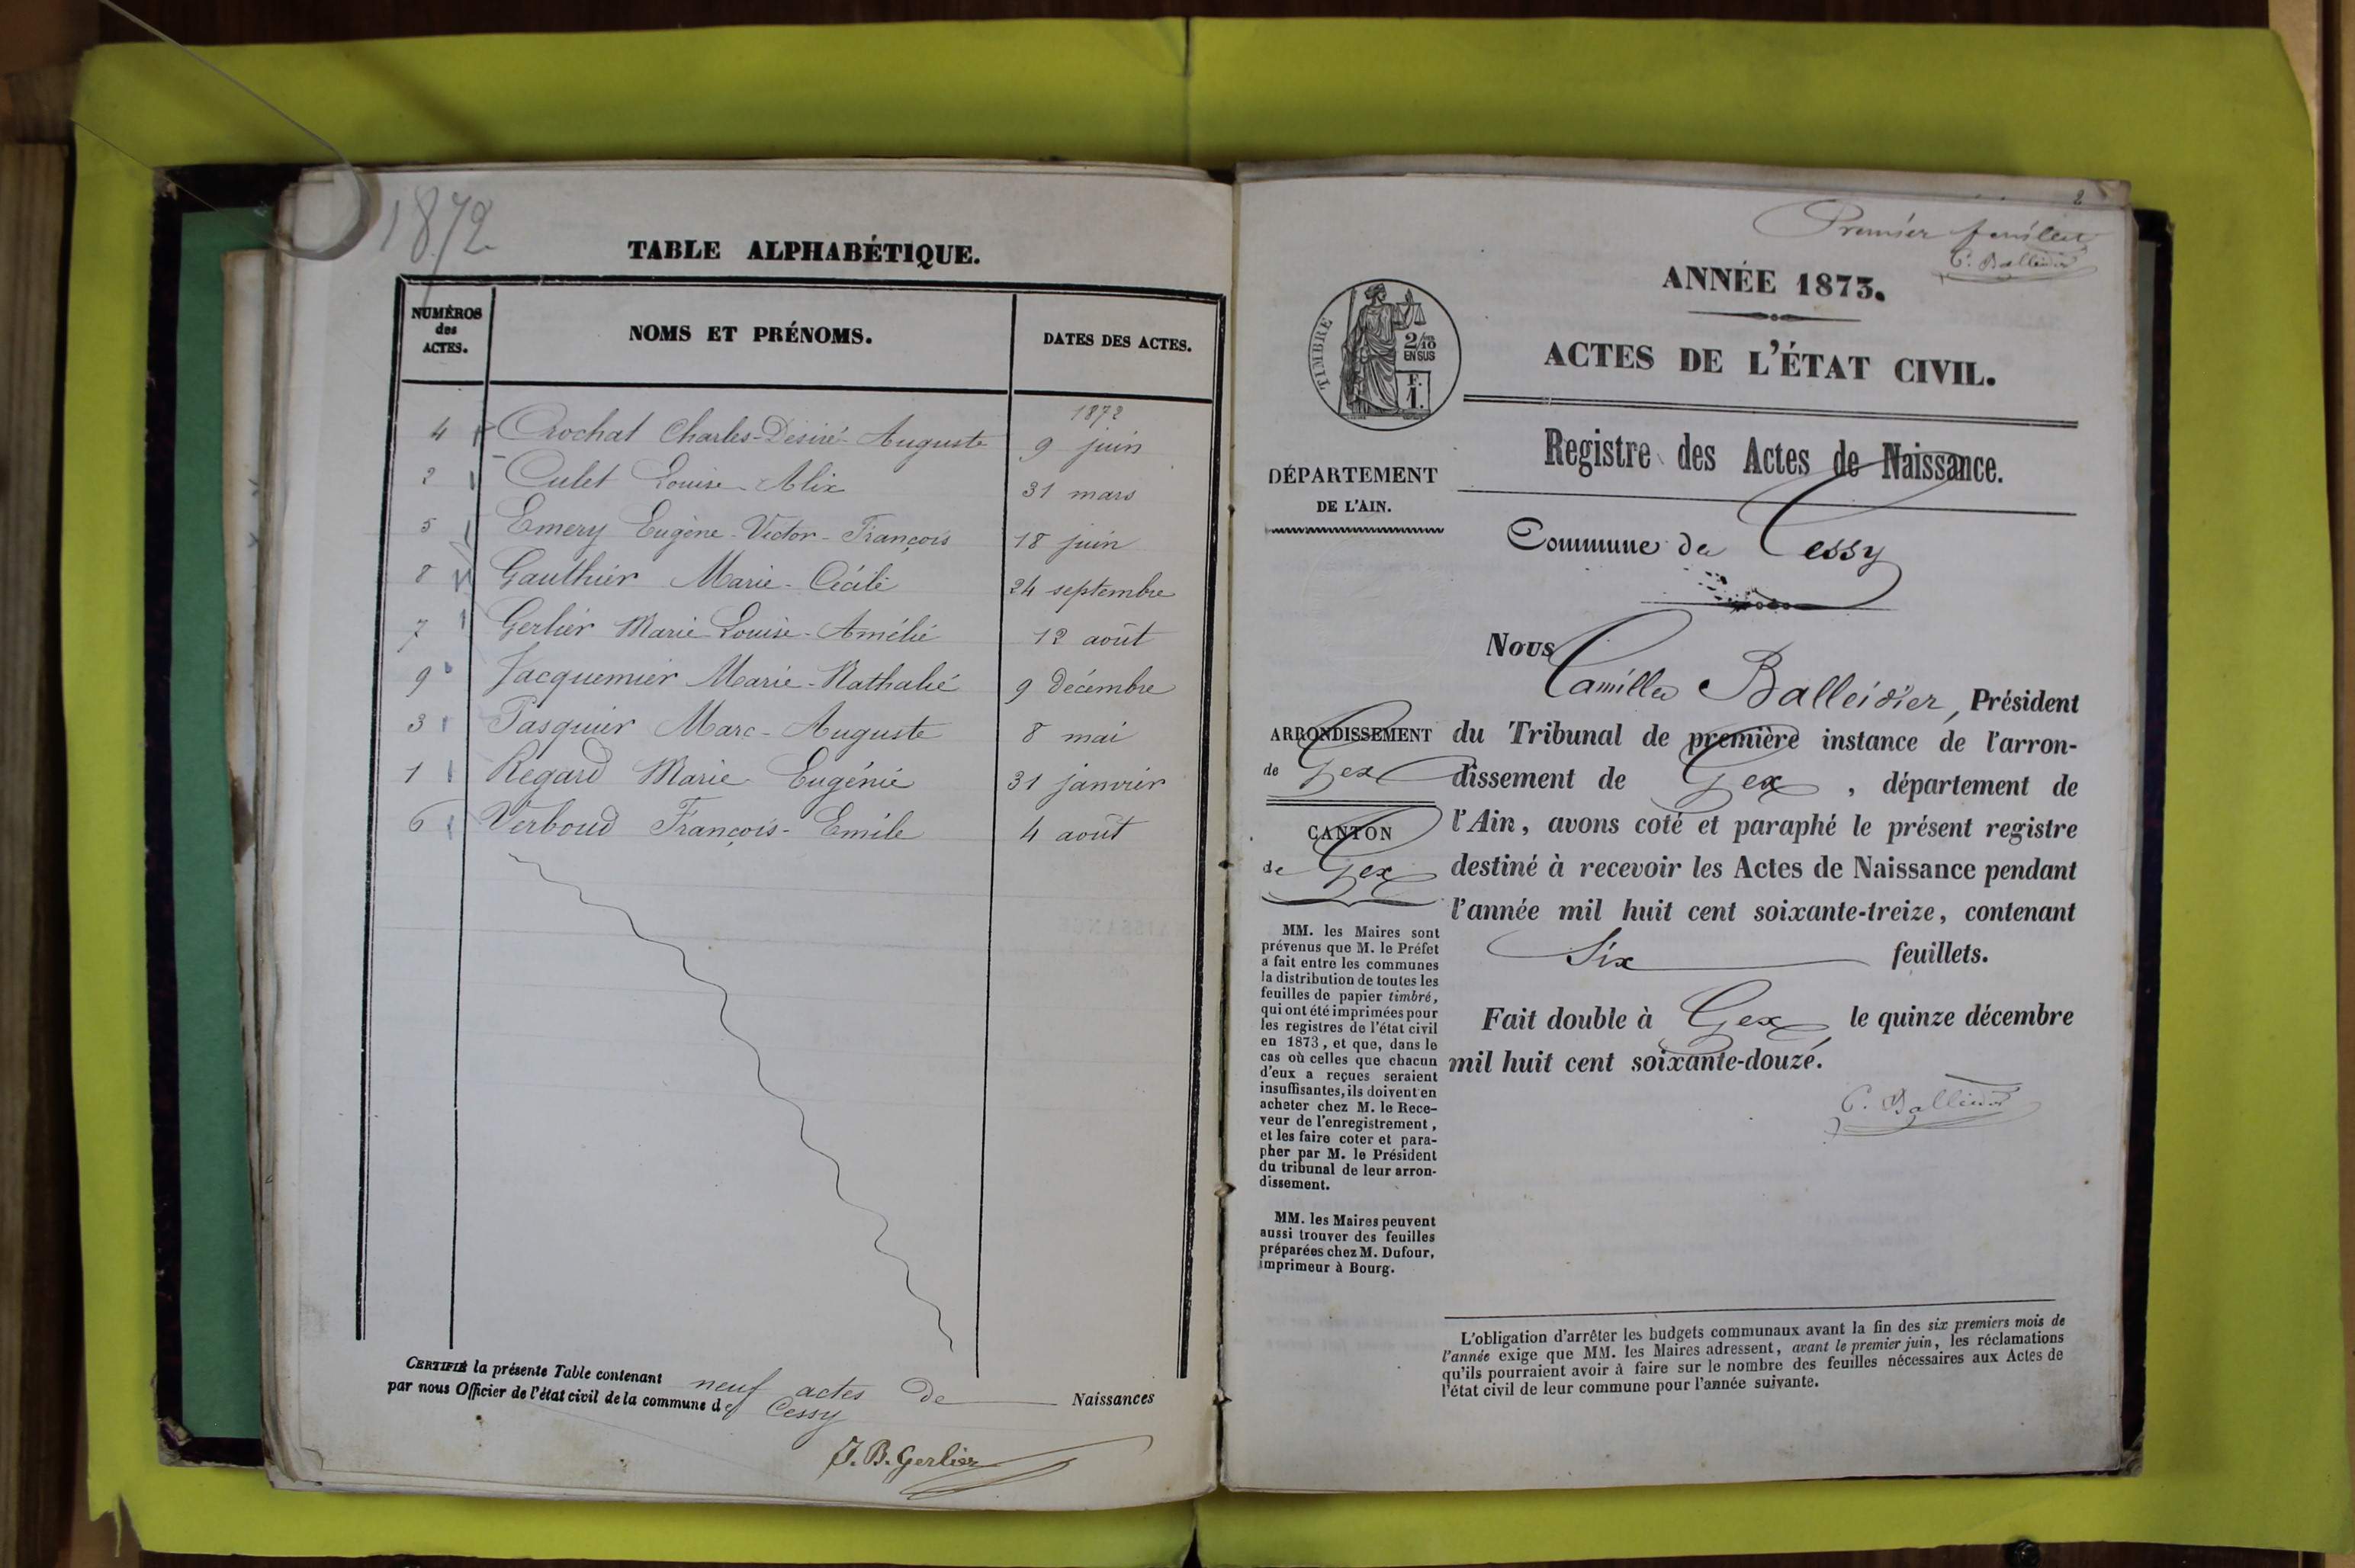 1872
TABLE ALPHABÉTIQUE.
NUMÉROS des ACTES. NOMS ET PRÉNOMS. DATES DES ACTES.
1872
4 Crochat Charles-Désiré-Auguste 9 juin
2 Culet Louise Alix 31 mars
5 Emery Eugène-Victor-François 18 juin
8 Gauthier Marie-Cécile 24 septembre
7 Gerlier Marie-Louise-Amélie 12 août
9 Jacquemier Marie-Nathalie 9 décembre
3 Pasquier Marc-Auguste 8 mai
1 Regard Marie Eugénie 31 janvier
6 Verboud François-Emile 4 août
CERTIFIÉ la présente Table contenant neuf actes de Naissances
par nous Officier de l'état civil de la commune de Cessy
J. B. Gerlier
2
Premier feuillet
C. Balleidier
ANNÉE 1873.
TIMBRE
2/10
EN SUS
F.
1.
ACTES DE L'ÉTAT CIVIL.
Registre des Actes de Naissance.
DÉPARTEMENT
DE L'AIN.
Commune de Cessy
ARRONDISSEMENT
de Gex
CANTON
de Gex
MM. les Maires sont
prévenus que M. le Préfet
a fait entre les communes
la distribution de toutes les
feuilles de papier timbré,
qui ont été imprimées pour
les registres de l'état civil
en 1873, et que, dans le
cas où celles que chacun
d'eux a reçues seraient
insuffisantes, ils doivent en
acheter chez M. le Rece-
veur de l'enregistrement,
et les faire coter et para-
pher par M. le Président
du tribunal de leur arron-
dissement.
MM. les Maires peuvent
aussi trouver des feuilles
préparées chez M. Dufour,
imprimeur à Bourg.
Nous
Camille Balleidier, Président
du Tribunal de première instance de l'arron-
dissement de Gex, département de
l'Ain, avons coté et paraphé le présent registre
destiné à recevoir les Actes de Naissance pendant
l'année mil huit cent soixante-treize, contenant
Six feuillets.
Fait double à Gex, le quinze décembre
mil huit cent soixante-douze.
C. Balleidier
L'obligation d'arrêter les budgets communaux avant la fin des six premiers mois de
l'année exige que MM. les Maires adressent, avant le premier juin, les réclamations
qu'ils pourraient avoir à faire sur le nombre des feuilles nécessaires aux Actes de
l'état civil de leur commune pour l'année suivante.